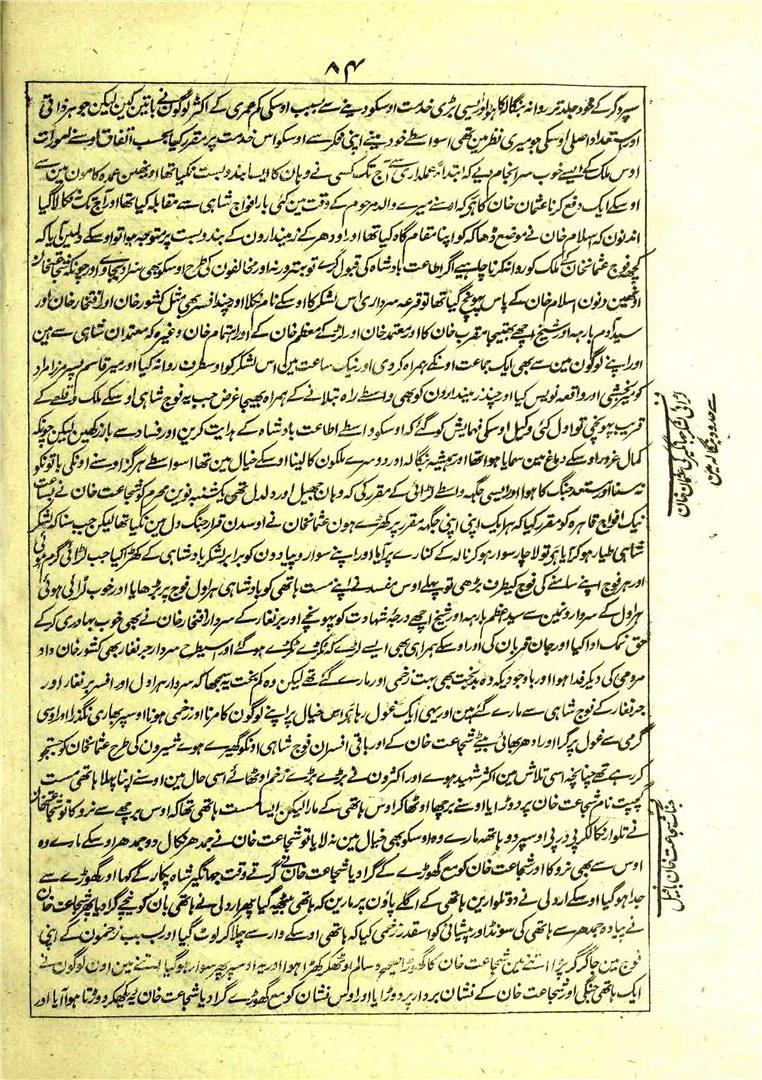 ۸۴
سپرد کر کے خود جلد تر روانہ بنگالا کا ہوا اور ایسی بڑی خدمت اوسکو دینے سے بسبب اوسکی کم عمری کے اکثر لوگون نے باتین کین لیکن جوہر ذاتی
اور استعداد اصلی اوسکی جو میری نظر مین تھی اسواسطے خود مینے اپنی فکر سے اوسکو اس خدمت پر مقرر کیا بحسب اتفاق اوسنے امورات
اوس ملک کے ایسے خوب سرانجام دیے کہ ابتداے عملداری سے آج تک کسی نے وہان کا ایسا بندوبست نکیا تھا اور بعضین عمدہ کامون مین سے
اوسکے ایک دفع کرنا عثمان خان کا ہی کہ اوسنے میرے والد مرحوم کے وقت مین کئی بار افواج شاہی سے مقابلہ کیا تھا اور آج تک نکالا گیا
اندنون کہ اسلام خان نے موضع ڈھاکہ کو اپنا مقام گاہ کیا تھا اور اودھر کے زمیندارون کے بندوبست پر متوجہ ہوا تو اوسکے دلمین آیا کہ
کچھ فوج عثمانخان کے ملک کو روانہ کرنا چاہیے اگر اطاعت بادشاہ کی قبول کرے تو بہتر ورنہ اور مخالفون کی طرح اوسکو بھی سزا دیجاوے اور چونکہ شجاعتخان
اونھین دنون اسلام خان کے پاس پہونچ گیا تھا تو قرعہ سرداری اس لشکر کا اوسکے نام نکلا اور چند افسر بھی مثل کشور خان اور افتخار خان اور
سید آدم بارہہ اور شیخ اچھے بھتیجا مقرب خان کا اور معتمد خان اور لڑکے معظم خان کے اور اہتمام خان وغیرہ کہ معتمدان شاہی سے ہین
اور اپنے لوگون مین سے بھی ایک جماعت اونکے ہمراہ کر دی اور نیک ساعت مین اس لشکر کو اوسطرف روانہ کیا اور میر قاسم پسر مرزا مراد
کو میر بخشی اور واقعہ نویس کیا اور چند زمیندارون کو بھی واسطے راہ بتلانے کے ہمراہ بھیجا غرض جب یہ فوج شاہی اوسکے ملک و قلعے کے
قریب پہونچی تو اول کئی وکیل اوسکی فہمایش کو گئے کہ اوسکو واسطے اطاعت بادشاہ کے ہدایت کرین اور فساد سے باز رکھین لیکن چونکہ
کمال غرور اوسکے دماغ مین سمایا ہوا تھا اور ہمیشہ بنگالہ اور دوسرے ملکون کا لینا اوسکے خیال مین تھا اسواسطے ہرگز اوسنے اونکی باتونکو
نہ سنا اور مستعد جنگ کا ہوا اور ایسی جگہہ واسطے لڑائی کے مقرر کی کہ وہان جھیل اور دلدل تھی یکشنبہ نوین محرم کو شجاعت خان نے بساعت
نیک افواج قاہرہ کو مقرر کیا کہ ہر ایک اپنی اپنی جگہہ مقرر پر کھڑے ہون عثمانخان نے اوسدن قرار جنگ دل مین نکیا تھا لیکن جب سنا کہ لشکر
شاہی طیار ہو کر آیا ہی تو لاچار سوار ہو کر نالہ کے کنارے پر آیا اور اپنے سوار و پیادون کو برابر لشکر بادشاہی کے کھڑا کیا جب لڑائی گرم ہوئی
اور ہر فوج اپنے سامنے کی فوج کیطرف بڑھی تو پہلے اوس مفسد نے اپنے مست ہاتھی کو بادشاہی ہراول فوج پر بڑھایا اور خوب لڑائی ہوئی
ہراول کے سردارونمین سے سید اعظم بارہہ اور شیخ اچھے درجۂ شہادت کو پہونچے اور برنغار کے سردار افتخار خان نے بھی خوب بہادری کر کے
حق نمک ادا کیا اور جان قربان کی اور اوسکے ہمراہی بھی ایسے لڑے کہ ٹکڑے ٹکڑے ہو گئے اور اسیطرح سردار جرنغار بھی کشور خان داد
مردمی کی دیکر فدا ہوا اور باوجودیکہ وہ بدبخت بھی بہت زخمی اور مارے گئے تھے لیکن وہ کم بخت یہ سمجھا کہ سردار ہراول اور افسر برنغار اور
جرنغار کے فوج شاہی سے مارے گئے ہین اور یہی ایک غول رہا ہر اس خیال پر اپنے لوگون کا مرنا اور زخمی ہونا اوسپر بھاری نگذرا اور اوسی
گرمی سے غول پر گرا اور ادھر بھائی بیٹے شجاعت خان کے اور باقی افسران فوج شاہی اونکو گھیرے ہوے شیرون کی طرح عثمانخان کو جستجو
کر رہے تھے چنانچہ اسی تلاش مین اکثر شہید ہوے اور اکثرون نے بڑے بڑے زخم اوٹھائے اسی حال مین اوسنے اپنا پہلا ہاتھی مست
گجپت نام شجاعت خان پر دوڑایا اوسنے برچھا اوٹھا کر اوس ہاتھی کے مارا لیکن ایسا مست ہاتھی تھا کہ اوس برچھے سے نرکا تو شجاعتخان
نے تلوار نکالکر پی در پی اوسپر دو ہاتھ مارے وہ اوسکو بھی خیال مین نہ لایا تو شجاعت خان نے جمدھر نکال دو جمدھر اوسکے مارے وہ
اوس سے بھی نرکا اور شجاعت خان کو مع گھوڑے کے گرا دیا شجاعت خان نے گرتے وقت جہانگیر شاہ پکار کے کہا اور گھوڑے سے
جدا ہو گیا اوسکے اردلی نے دو تلوارین ہاتھی کے اگلے پاؤن پر مارین کہ ہاتھی بیٹھہ گیا پھر اردلی نے ہاتھی بان کو نیچے گرا دیا پھر شجاعت خان
نے پیادہ جمدھر سے ہاتھی کی سونڈ اور پیشانی کو اسقدر زخمی کیا کہ ہاتھی اوسکے وار سے چلا کر لوٹ گیا اور بسبب زخمون کے اپنی
فوج مین جا کر گر پڑا اتنے مین شجاعت خان کا گھوڑا صحیح و سالم اوٹھکر کھڑا ہوا اور یہ اوسپر پھر سوار ہو گیا اتنے مین اون لوگون نے
ایک ہاتھی جنگی اور شجاعت خان کے نشان بردار پر دوڑایا اور اوس نشان کو مع گھوڑے گرا دیا شجاعت خان یہ دیکھکر دوڑتا ہوا آیا اور
لڑائی لشکر جہانگیر کی عثمان خان
سے حدود بنگالہ مین
جنگ شجاعت خان با فیل